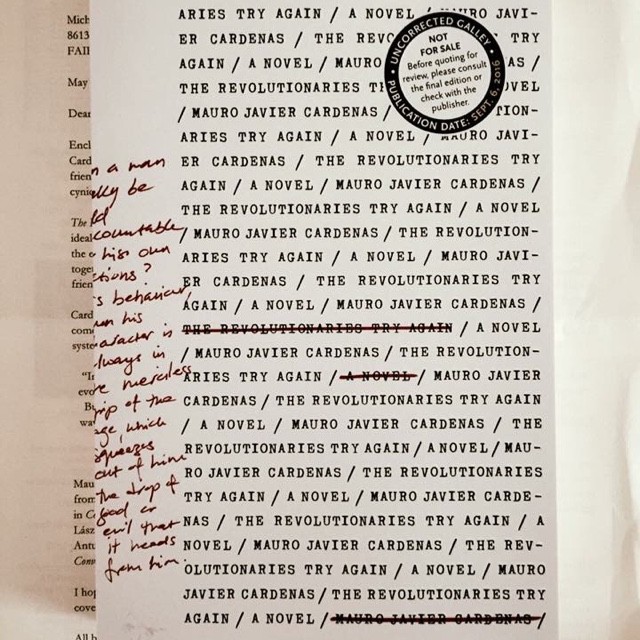 Mich
8613
FAI
May
Dear
Encl
Card
frien
cyni
The
ideal
the
toge
frien
Card
com
syste
“I
evo
B
wa
Mau
from
in C
Lász
Antu
Con
I hop
cove
All b
n a man
lly be
ld
countable
his own
ctions?
s behaviour,
en his
aracter is
lways in
e merciless
rip of the
age, which
squeezes
out of him
the drop of
good or
evil that
it needs
from him.
ARIES TRY AGAIN / A NOVEL / MAURO JAVI-
ER CARDENAS / THE REVO TRY
AGAIN / A NOVEL / MAURO AS /
THE REVOLUTIONARIES T OVEL
/ MAURO JAVIER CARDENAS / TION-
ARIES TRY AGAIN / A NOVEL / MAURO JAVI-
ER CARDENAS / THE REVOLUTIONARIES TRY
AGAIN / A NOVEL / MAURO JAVIER CARDENAS /
THE REVOLUTIONARIES TRY AGAIN / A NOVEL
/ MAURO JAVIER CARDENAS / THE REVOLUTION-
ARIES TRY AGAIN / A NOVEL / MAURO JAVI-
ER CARDENAS / THE REVOLUTIONARIES TRY
AGAIN / A NOVEL / MAURO JAVIER CARDENAS /
THE REVOLUTIONARIES TRY AGAIN / A NOVEL
/ MAURO JAVIER CARDENAS / THE REVOLUTION-
ARIES TRY AGAIN / A NOVEL / MAURO JAVIER
CARDENAS / THE REVOLUTIONARIES TRY AGAIN
/ A NOVEL / MAURO JAVIER CARDENAS / THE
REVOLUTIONARIES TRY AGAIN / A NOVEL / MAU-
RO JAVIER CARDENAS / THE REVOLUTIONARIES
TRY AGAIN / A NOVEL / MAURO JAVIER CARDE-
NAS / THE REVOLUTIONARIES TRY AGAIN / A
NOVEL / MAURO JAVIER CARDENAS / THE REV-
OLUTIONARIES TRY AGAIN / A NOVEL / MAURO
JAVIER CARDENAS / THE REVOLUTIONARIES TRY
AGAIN / A NOVEL / MAURO JAVIER CARDENAS /
UNCORRECTED GALLEY
NOT
FOR SALE
Before quoting for
review, please consult
the final edition or
check with the
publisher.
PUBLICATION DATE: SEPT. 6, 2016